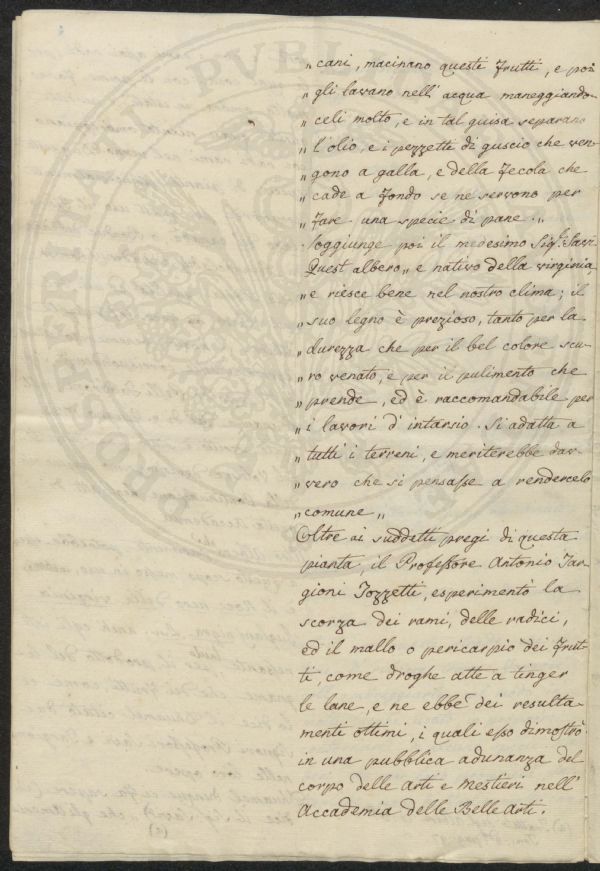 „ cani, macinano questi frutti, e poi
„ gli lavano nell' acqua maneggiando-
„ celi molto, e in tal guisa separano
„ l'olio, e i pezzetti di guscio che ven-
„ gono a galla, e della fecola che
„ cade a fondo se ne servono per
„ fare una specie di pane „
Soggiunge poi il medesimo Sig.r Savi
Quest albero „ e nativo della virginia
„ e riesce bene nel nostro clima; il
„ suo legno è prezioso, tanto per la
„ durezza che per il bel colore scu-
„ ro venato, e per il pulimento che
„ prende, ed è raccomandabile per
„ i lavori d' intarsio. Si adatta a
„ tutti i terreni, e meriterebbe dav-
„ vero che si pensasse a rendercelo
„ comune „
Oltre ai suddetti pregi di questa
pianta, il Professore Antonio Tar-
gioni Tozzetti, esperimentò la
scorza dei rami, delle radici,
ed il mallo o pericarpio dei frut-
ti, come droghe atte a tinger
le lane, e ne ebbe dei resulta-
menti ottimi, i quali esso dimostrò
in una pubblica adunanza del
corpo delle arti e mestieri nell'
Accademia delle Belle Arti.